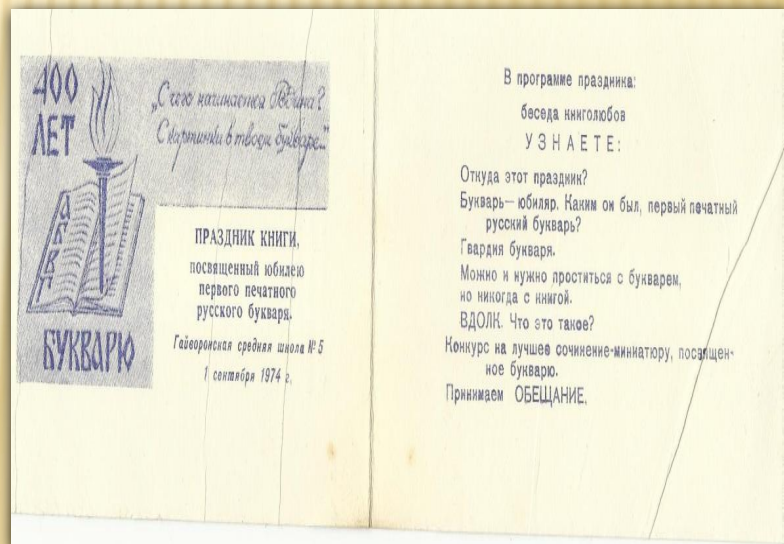 400
ЛЕТ
„С чего начинается Родина?
С картинки в твоем букваре..."
А
Б
В
Г
БУКВАРЮ
ПРАЗДНИК КНИГИ,
посвященный юбилею
первого печатного
русского букваря.
Гайворонская средняя школа № 5
1 сентября 1974 г.
В программе праздника:
беседа книголюбов
УЗНАЕТЕ:
Откуда этот праздник?
Букварь — юбиляр. Каким он был, первый печатный
русский букварь?
Гвардия букваря.
Можно и нужно проститься с букварем,
но никогда с книгой.
ВДОЛК. Что это такое?
Конкурс на лучшее сочинение-миниатюру, посвящен-
ное букварю.
Принимаем ОБЕЩАНИЕ.